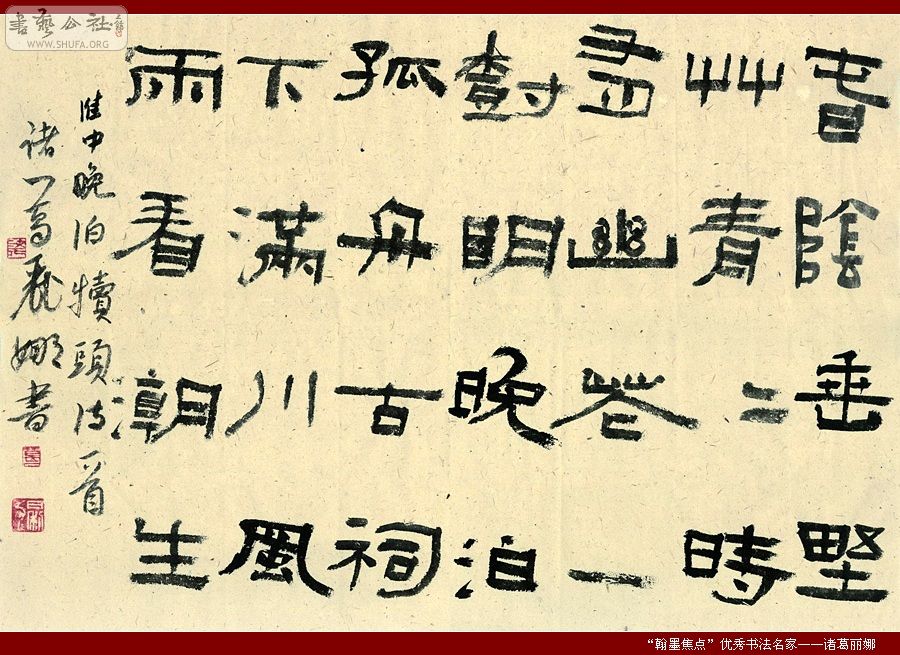 書藝公社
WWW.SHUFA.ORG
春陰垂野
艸青二時
有幽花一
樹明晚泊
孤舟古祠
下滿川風
雨看潮生
淮中晚泊犢頭詩一首
諸葛麗娜書
“翰墨焦点”优秀书法名家——诸葛丽娜